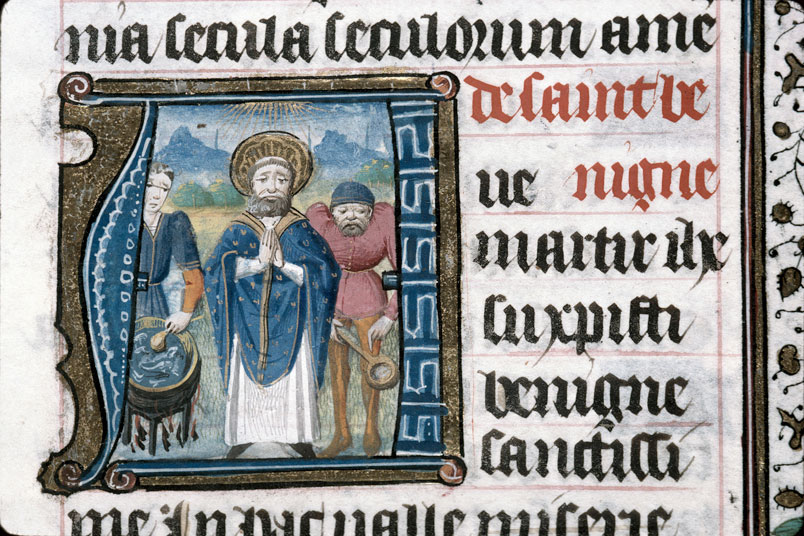 nia secula seculorum ame
de saint be
Aue nigne
martir ihe
su xpisti
benigne
sanctissi
me In hac ualle miserie